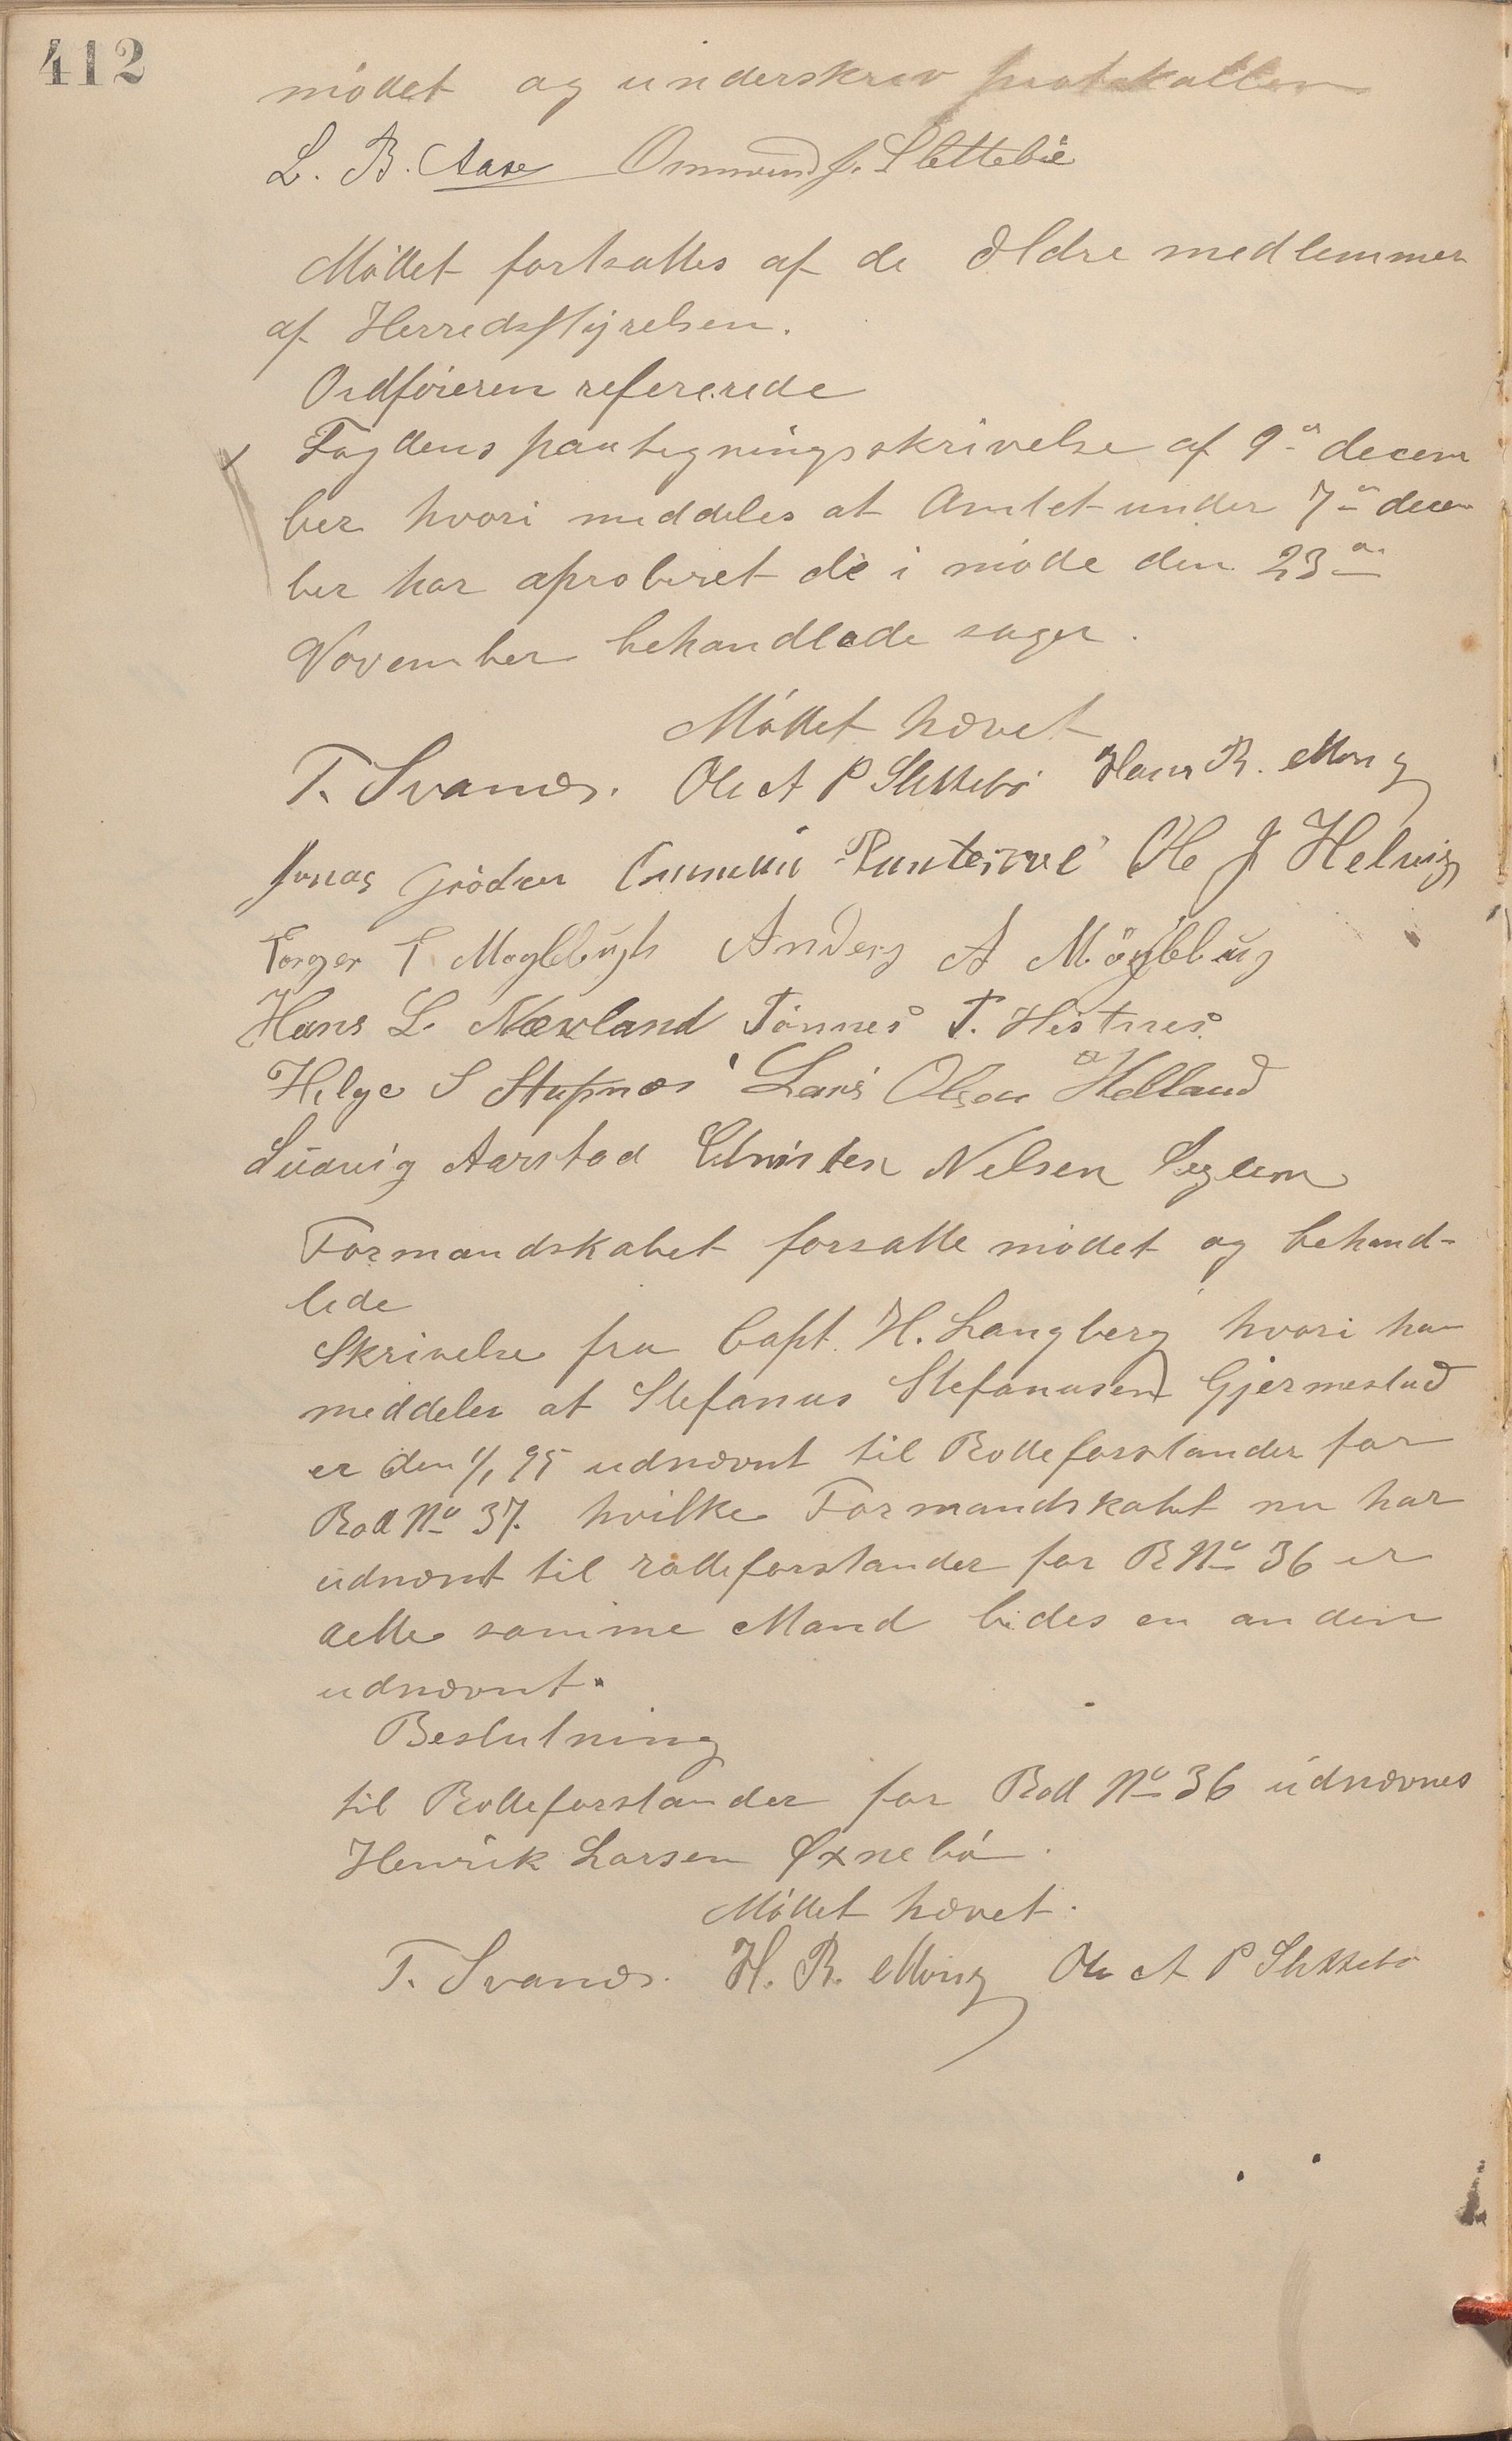 412
mödet og underskrev protokollen
L. B. Aase Ommund J. Slettebö
Mödet fortsattes af de Ældre medlemmer
af Herredsstyrelsen.
Ordföreren refererede
Fogdens paategningsskrivelse af 9de decem
ber hvori meddeles at Amtet under 7de decem
ber har aproberet de i möde den 23de
November behandlede sager.
Mödet hævet
T. Svanæs. Ole A P Slettebö Hans R. Mong
Jonas Grödem Ommund Puntervol Ole J Helvig
Torger T Møglebugh Anders A Møglebug
Hans L. Nævland Tönnes T. Hestnes
Helge S Stapnæs Lars Olsen Helland
Ludvig Aarstad Christen Nelsen Seglem
Formandskabet forsatte mödet og behand-
lede
Skrivelse fra Capt. H. Langberg hvori han
meddeler at Stefanus Stefanusen Gjermestad
er den 1/1 95 udnævnt til Rodeforstander for
Rod No 37. hvilke Formandskabet nu har
udnævnt til rodeforstander for R No 36 er
dette samme Mand bedes en anden
udnævnt.
Beslutning
til Rodeforstander for Rod No 36 udnævnes
Henrik Larsen Øxnebö.
Mödet hævet.
T. Svanæs. H. R. Mong Ole A P Slettebö